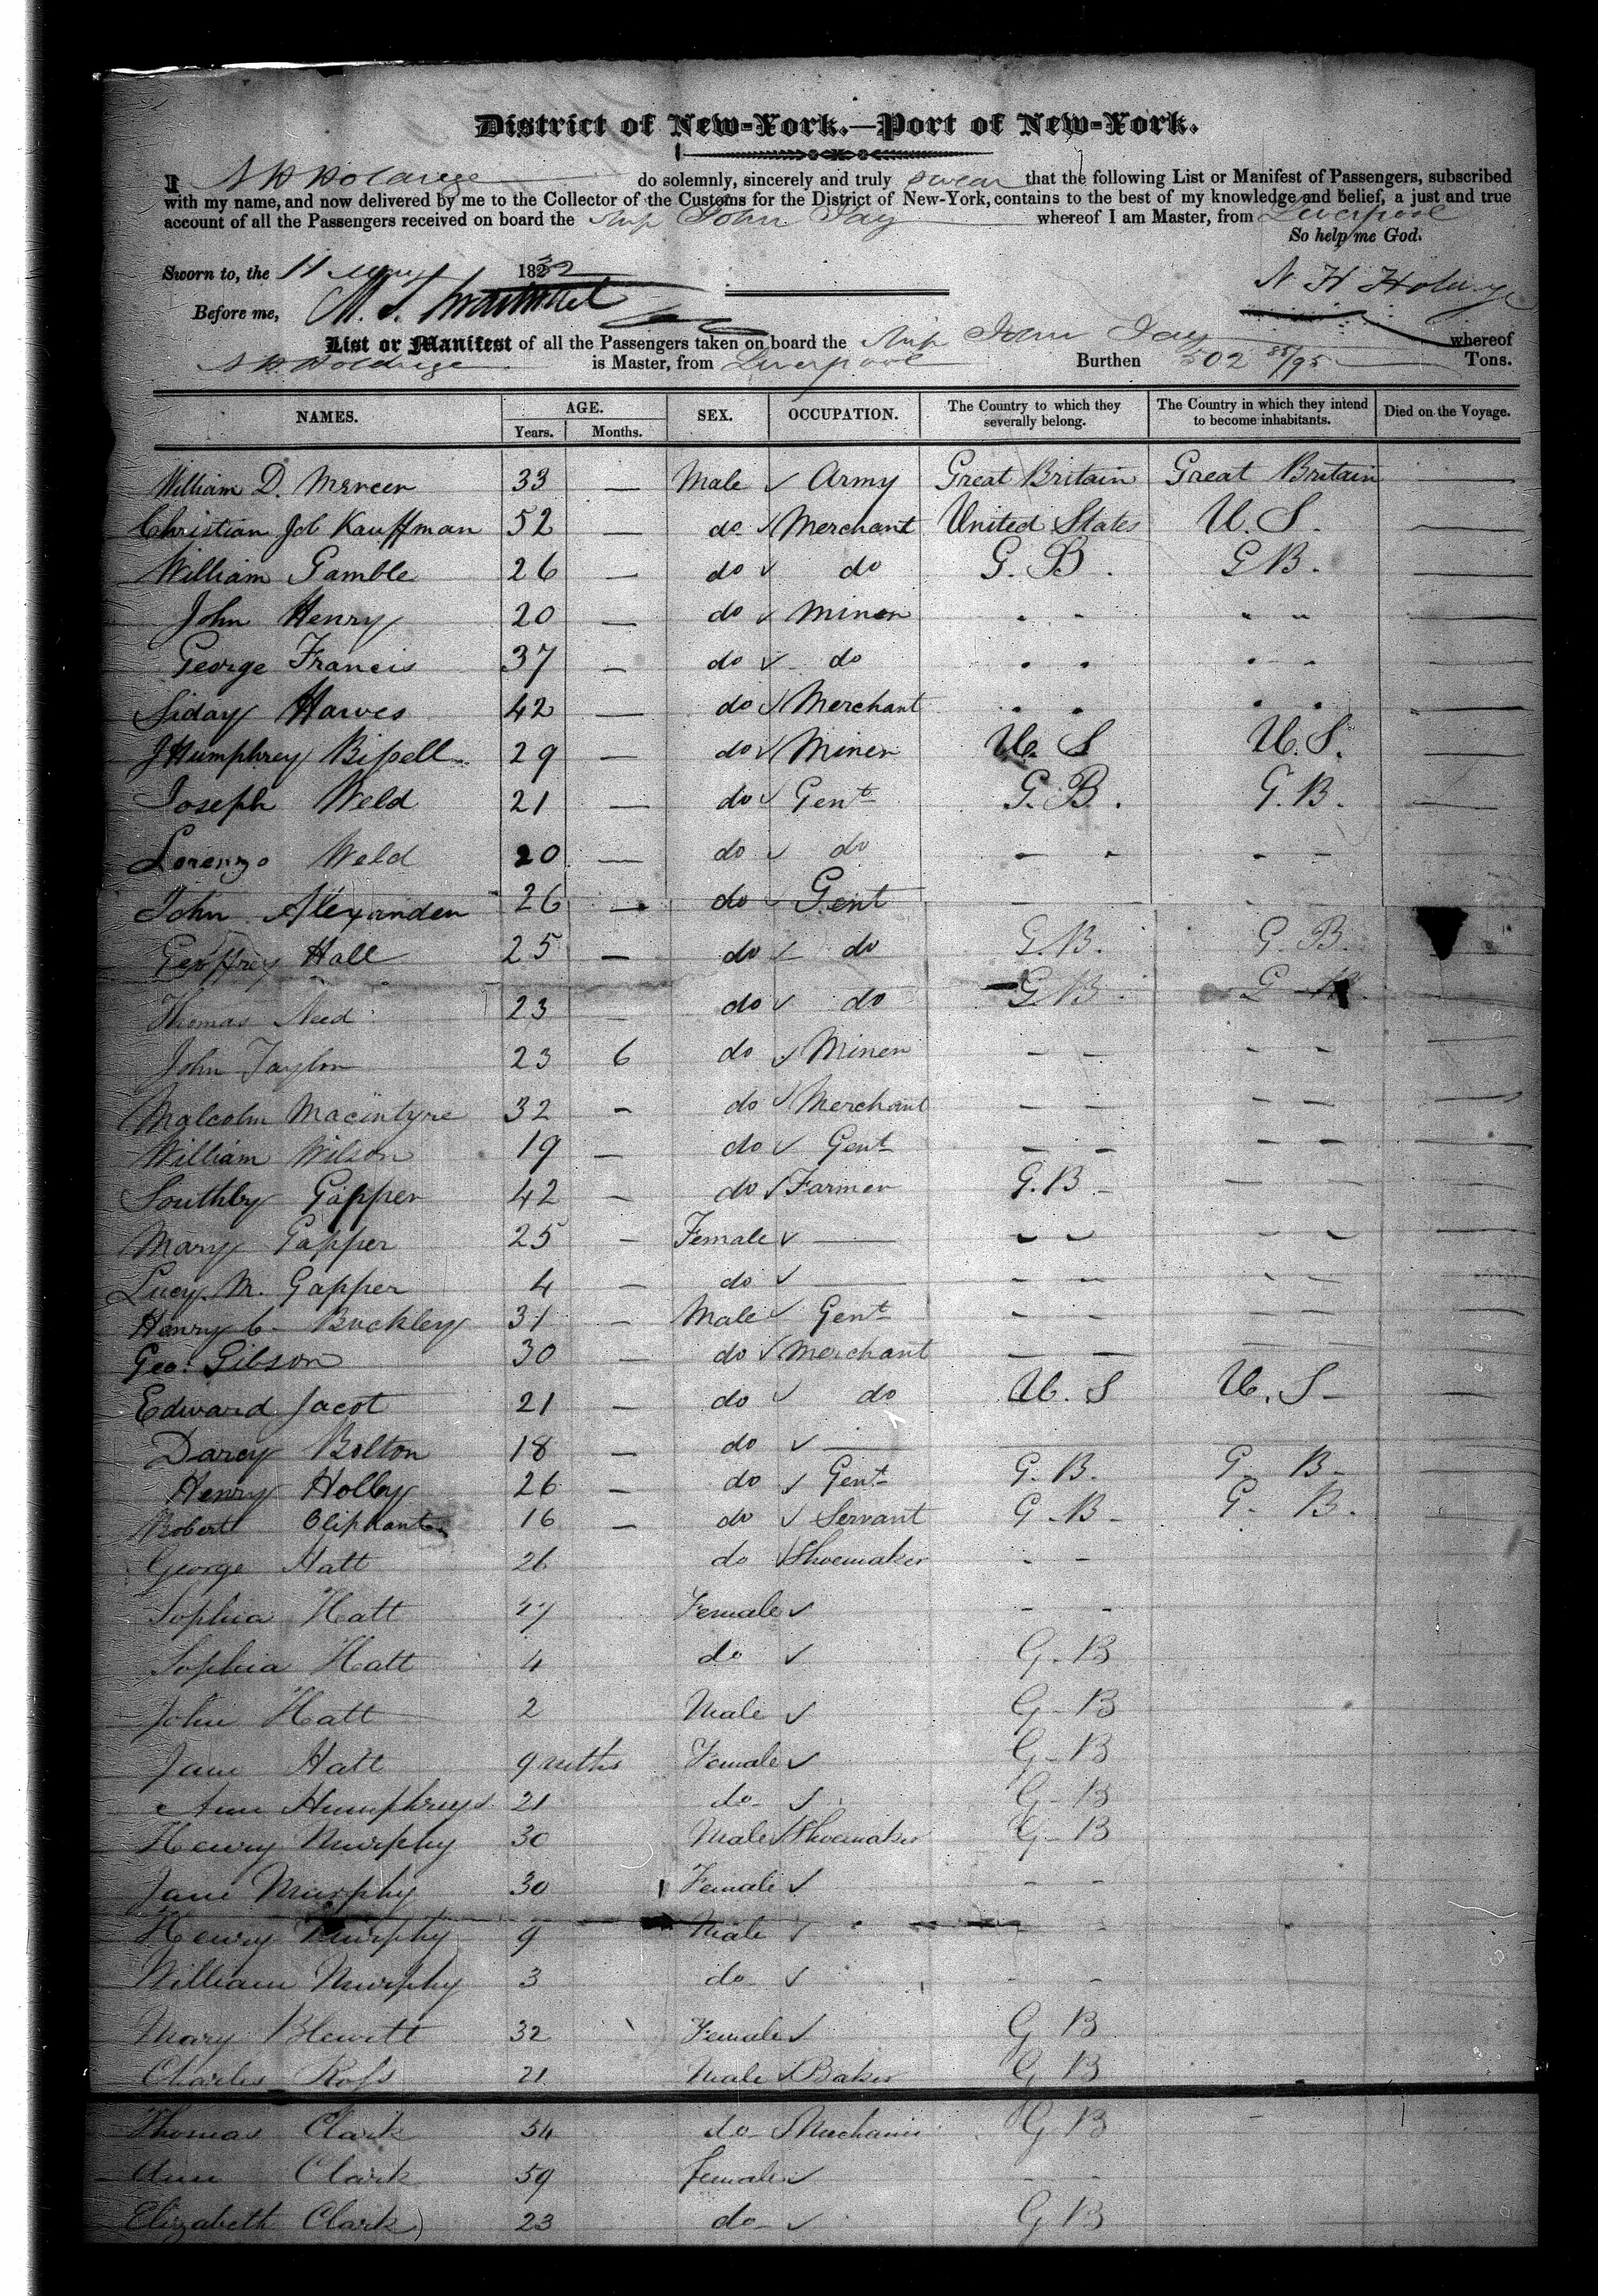 District of New-York.—Port of New-York.
I N H Holdrege do solemnly, sincerely and truly swear that the following List or Manifest of Passengers, subscribed
with my name, and now delivered by me to the Collector of the Customs for the District of New-York, contains to the best of my knowledge and belief, a just and true
account of all the Passengers received on board the Ship John Jay whereof I am Master, from Liverpool
So help me God.
Sworn to, the 11 1832
N H Holdrege
Before me,
List or Manifest of all the Passengers taken on board the Ship John Jay whereof
N H Holdrege is Master, from Liverpool Burthen 502 85/95 Tons.
NAMES. AGE. SEX. OCCUPATION. The Country to which they severally belong. The Country in which they intend to become inhabitants. Died on the Voyage.
Years. Months.
William D. Mercer 33 — Male ✓ Army Great Britain Great Britain —
Christian Job Kauffman 52 — do ✓ Merchant United States U. S. —
William Gamble 26 — do ✓ do G. B. G B. —
John Henry 20 — do ✓ Miner " " " " —
George Francis 37 — do ✓ do " " " " —
Siday Hawes 42 — do ✓ Merchant " " " " —
J Humphrey Bissell 29 — do ✓ Miner U. S U. S. —
Joseph Weld 21 — do ✓ Gent G. B. G. B. —
Lorenzo Weld 20 — do ✓ do - - - -
John Alexander 26 — do ✓ Gent — —
Geoffrey Hall 25 — do ✓ do G. B. G. B.
Thomas Need 23 — do ✓ do G. B. G B.
John Taylor 23 6 do ✓ Miner — — — — —
Malcolm Macintyre 32 — do ✓ Merchant — — — — —
William Wilson 19 — do ✓ Gent — — — — —
Southby Gapper 42 — do ✓ Farmer G. B — — — —
Mary Gapper 25 — Female ✓ — — — — — —
Lucy M. Gapper 4 — do ✓ — — — — — —
Henry C. Buckley 31 — Male ✓ Gent — — — — —
Geo. Gibson 30 — do ✓ Merchant — — — — —
Edward Jacot 21 — do ✓ do U. S U. S — —
Darcy Bolton 18 — do ✓ —
Henry Holby 26 — do ✓ Gent G. B. G. B —
Robert Oliphant 16 — do ✓ Servant G. B — G. B.
George Hatt 26 do ✓ Shoemaker - -
Sophia Hatt 27 Female ✓ - -
Sophia Hatt 4 do ✓ G. B
John Hatt 2 Male ✓ G. B
Jane Hatt 9 mths Female ✓ G. B
Ann Humphreys 21 do ✓ G. B
Henry Murphy 30 Male ✓ Shoemaker G. B
Jane Murphy 30 Female ✓ - -
Henry Murphy 9 Male ✓ -
William Murphy 3 do ✓ - -
Mary Blewitt 32 Female ✓ G B
Charles Ross 21 Male ✓ Baker G B
Thomas Clark 54 do ✓ Mechanic G B
Ann Clark 59 female ✓ - -
Elizabeth Clark 23 do ✓ G B